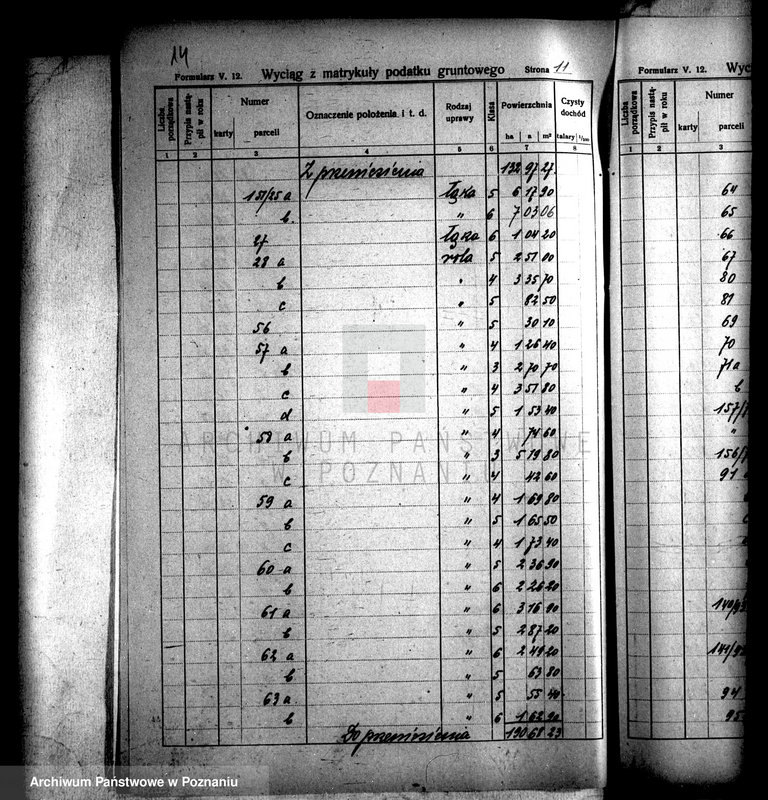 14
Formularz V. 12. Wyciąg z matrykuły podatku gruntowego Strona 11
Liczba porządkowa | Przypis nastąpił w roku | Numer karty | parceli | Oznaczenie położenia i t. d. | Rodzaj uprawy | Klasa | Powierzchnia ha a m² | Czysty dochód talary 1/100
1 2 3 4 5 6 7 8
Z przeniesienia 132 97 27
151/25 a łąka 5 6 17 90
b. " 6 7 03 06
27 łąka 6 1 04 20
28 a rola 5 2 51 00
b " 4 3 35 70
c " 5 82 50
56 " 5 30 10
57 a " 4 1 26 40
b " 3 2 70 70
c " 4 3 51 80
d " 5 1 53 40
58 a " 4 74 60
b " 3 5 19 80
c " 4 42 60
59 a " 4 1 69 80
b " 5 1 65 50
c " 4 1 73 40
60 a " 5 2 36 90
b " 6 2 26 20
61 a " 6 3 16 90
b " 5 2 87 20
62 a " 6 2 49 20
b " 5 63 80
63 a " 5 55 40
b " 6 1 62 90
Do przeniesienia 190 68 23
Formularz V. 12. Wyc
Liczba porządkowa | Przypis nastąpił w roku | Numer karty | parceli
1 2 3
64
65
66
67
80
81
69
70
71a
b
157/
"
156/
91
94
95
ARCHIWUM PAŃSTWOWE
W POZNANIU
Archiwum Państwowe w Poznaniu